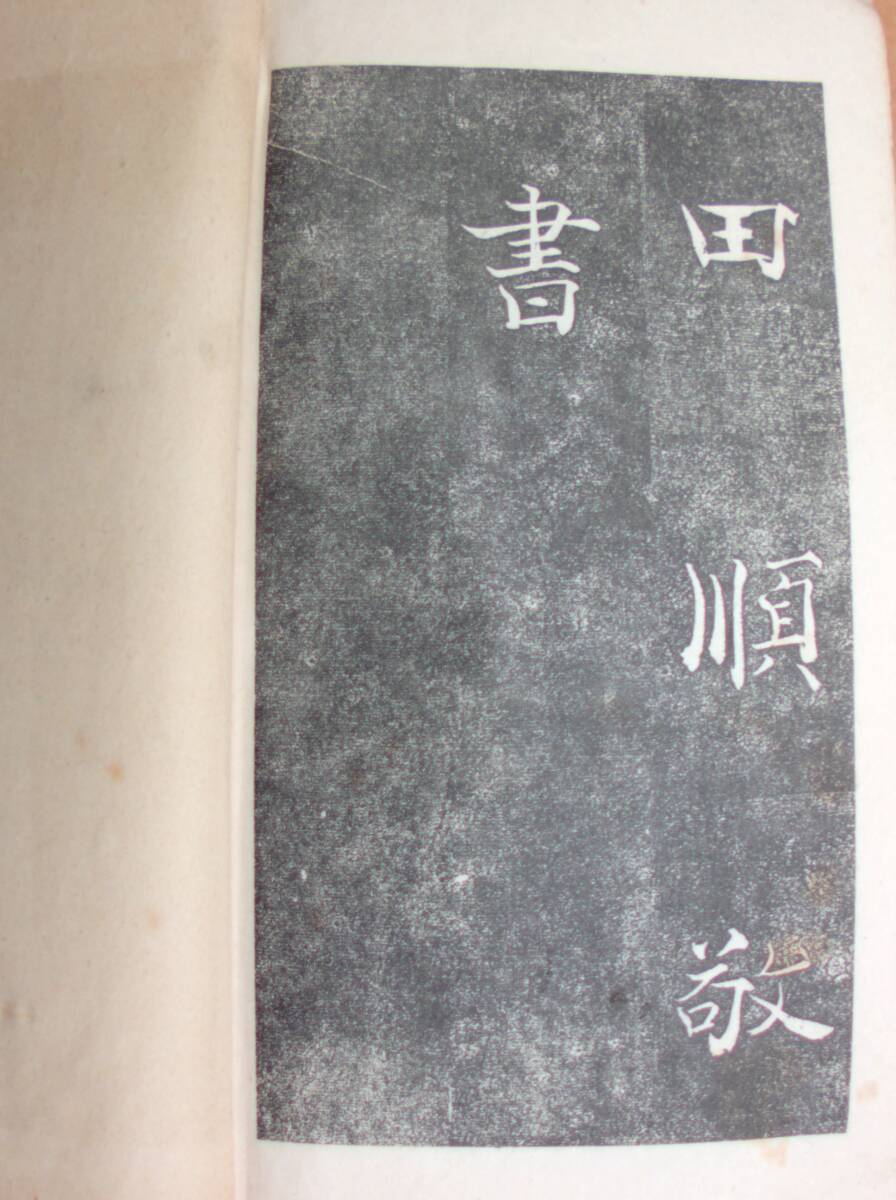 田順敬
書